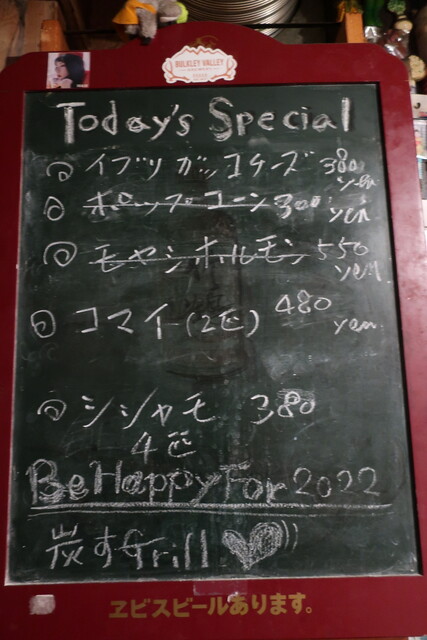 BULKLEY VALLEY
Today's Special
イブツガッコチーズ 380 yen
ポップコーン 300 yen
モヤシホルモン 550 yen
コマイ(2匹) 480 yen
シシャモ 380
4匹
Be Happy For 2022
炭す Grill
ヱビスビールあります。